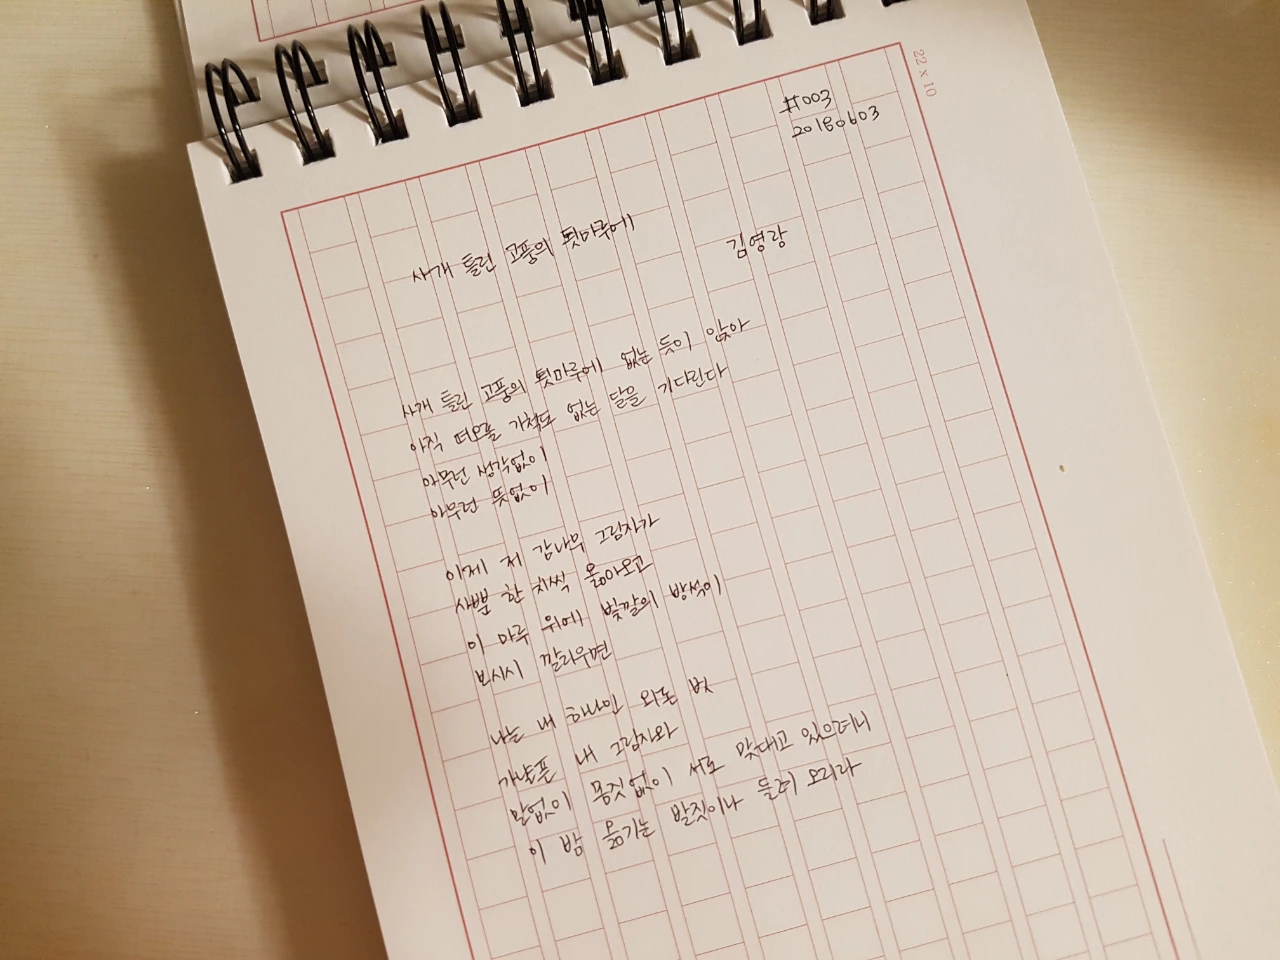 22 x 10
#003
20180603
사개 틀린 고풍의 툇마루에
김영랑
사개 틀린 고풍의 툇마루에 없는 듯이 앉아
아직 떠오를 기척도 없는 달을 기다린다
아무런 생각없이
아무런 뜻없이
이제 저 감나무 그림자가
사뿐 한 치씩 옮아오고
이 마루 위에 빛깔의 방석이
보시시 깔리우면
나는 내 하나인 외론 벗
가냘픈 내 그림자와
말없이 몸짓없이 서로 맞대고 있으려니
이 밤 옮기는 발짓이나 들려 오리라